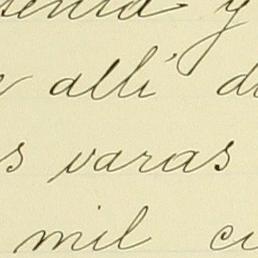 senta y
allí d
s varas
mil ci